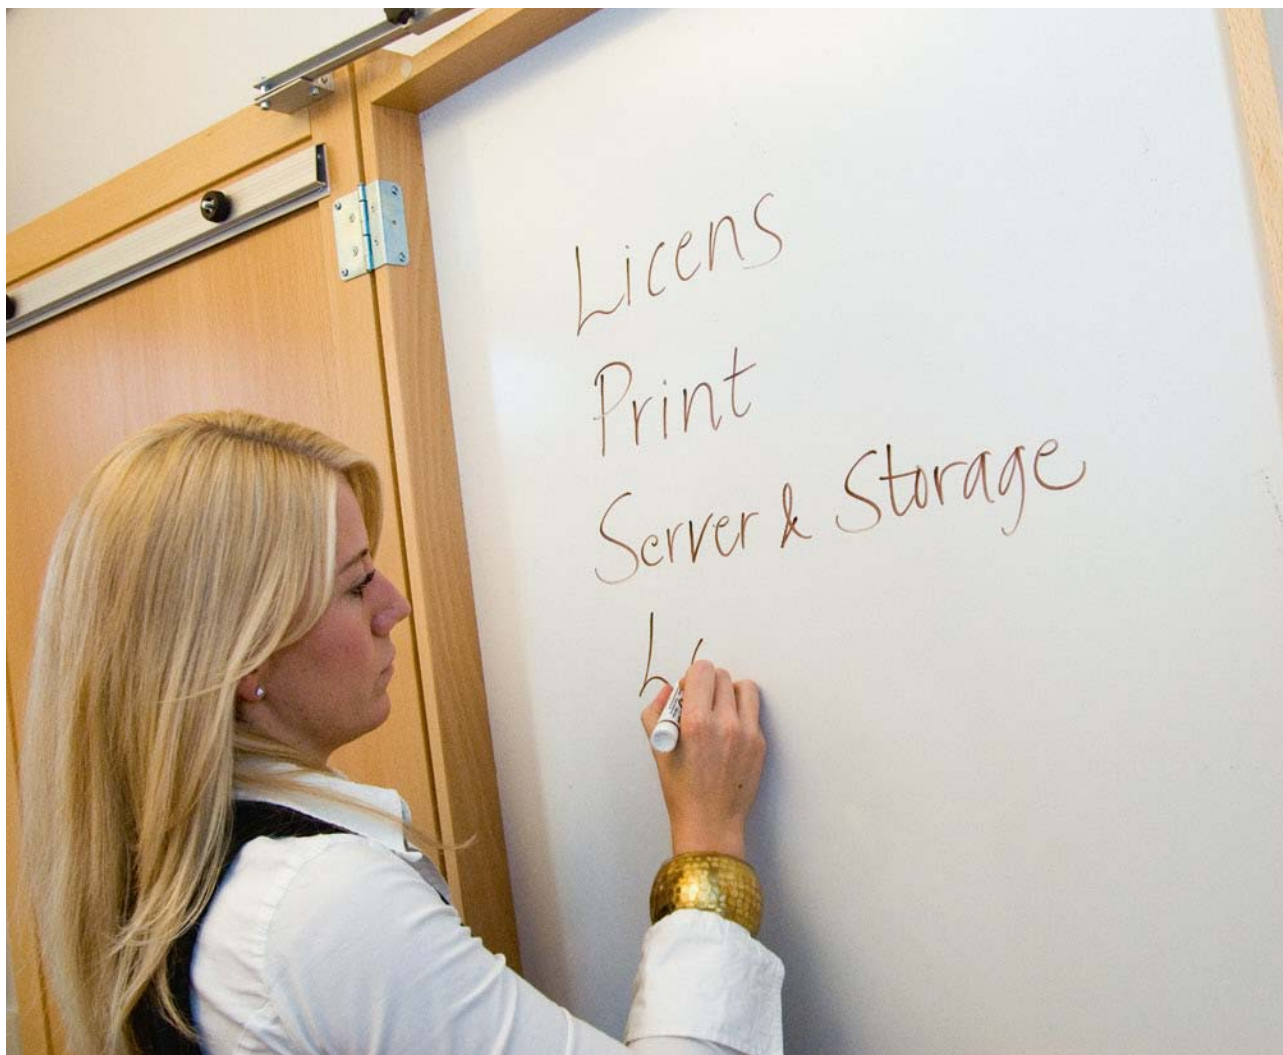 Licens
Print
Server & Storage